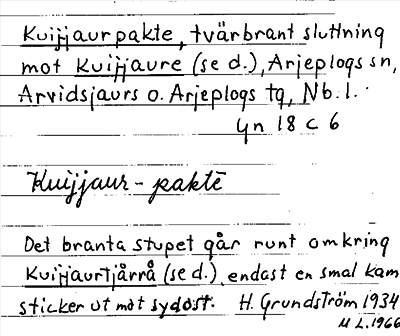 Kuijjaurpakte, tvärbrant sluttning
mot Kuijjaure (se d.), Arjeplogs sn,
Arvidsjaurs o. Arjeplogs tg, Nb. l.
Yn 18 c 6
Kuijjaur-paktē
Det branta stupet går runt omkring
Kuijjaurtjårrå (se d.), endast en smal kam
sticker ut mot sydost. H. Grundström 1934
M L. 1966